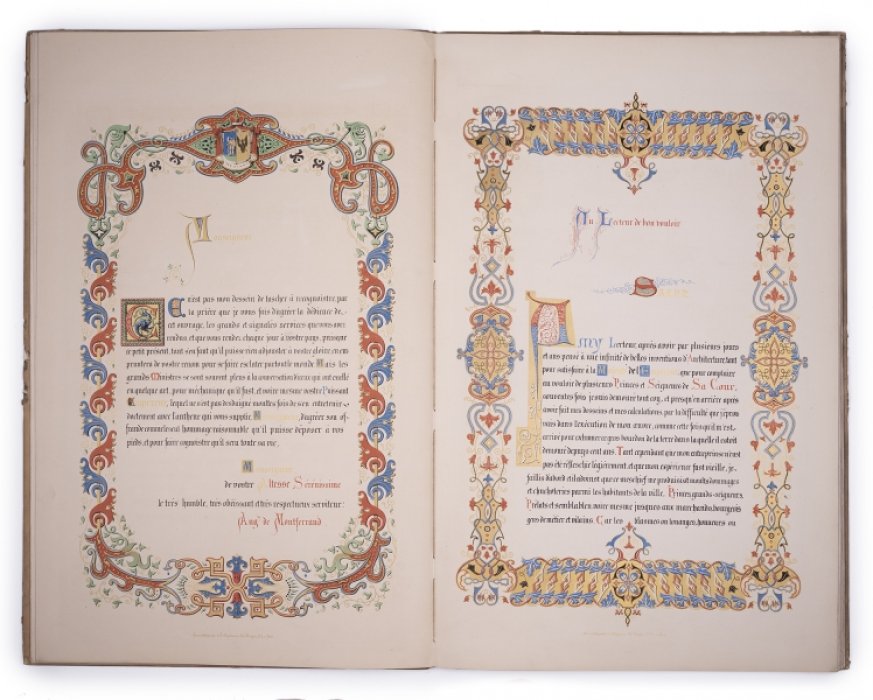 Monseigneur
Ce n'est pas mon dessein de tascher à recognoistre, par
la prière que je vous fais d'agréer la dédicace de
cet ouvrage, les grands et signalés services que vous avez
rendus et que vous rendez, chaque jour à vostre pays, presque
ce petit présent, tant s'en faut qu'il puisse rien adjouster à vostre gloire, en em
pruntera de vostre renom pour se faire esclater par tout le monde. Mais les
grands Ministres se sont souvent pleus à la conversation d'iceux qui ont excellé
en quelque art, pour méchanique qu'il fust, et voire mesme vostre Puissant
lequel ne s'est pas desdaigné moultes fois de s'en entretenir
doctement avec l'autheur qui vous supplie, Monseigneur, d'agréer son of-
frande comme le seul hommage raisonnable qu'il puisse déposer à vos
pieds, et pour faire cognoistre qu'il sera toute sa vie,
Monseigneur
de vostre Altesse Sérénissime
le très humble, très obéissant et très respectueux serviteur:
Aug. de Montferrand
Au Lecteur de bon vouloir
Salut
Amy Lecteur, après avoir par plusieurs jours
et ans pensé à une infinité de belles inventions d'Architecture, tant
pour satisfaire à la de que pour complaire
au vouloir de plusieurs Princes et Seigneurs de Sa Cour,
souventes fois je suis demeuré tout coy, et presqu'en arrière après
avoir fait mes desseins et mes calculations, par la difficulté que j'éprou
vois dans l'exécution de mon œuvre, comme cette fois qu'il m'est
arrivé pour extumer ce gros bourdon de la terre dans laquelle il estoit
demouré depuys cent ans. Tant cependant que mon entreprise n'eust
pas été réfleschie légièrement, et que mon expérience fust vieille, je
faillis d'abord et d'adonc et que ce meschief me produisit moults dommages
et chucheteries parmi les habitants de la ville. Princes, grands-seigneurs,
Prélats et semblables, voire mesme jusques aux marchands, bourgeois
gens de métier et vilains. Car les plusines ou louanges, honneurs ou